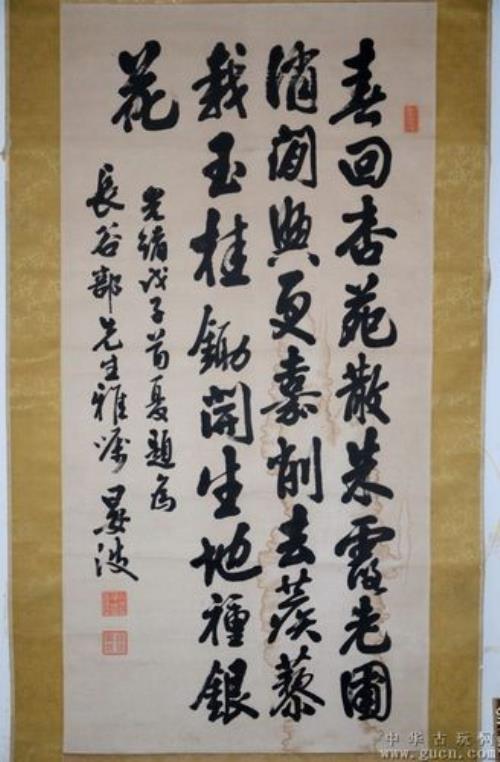 春回杏苑散朱霞老圃
消閒興更嘉削去蒺藜
栽玉桂鋤開生地種銀
花
光緒戊子首夏題為
長谷部先生雅囑 波
中华古玩网
www.gucn.com